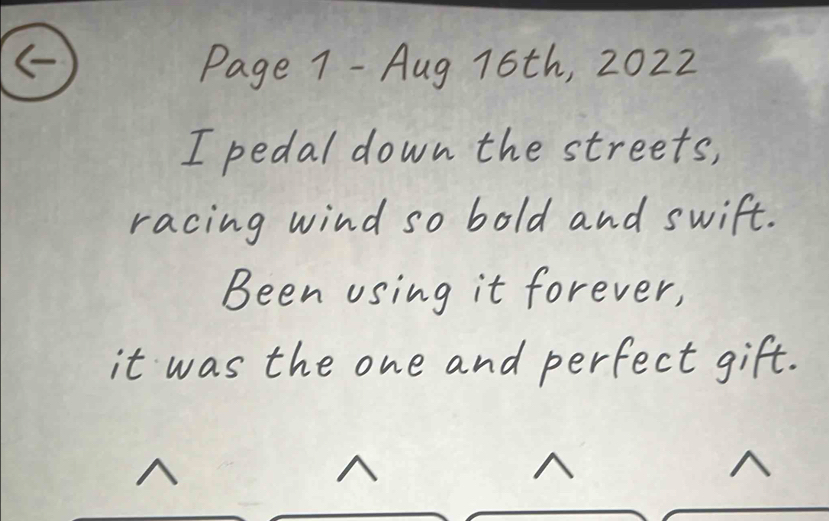 Page 1 - Aug 16th, 2022
I pedal down the streets,
racing wind so bold and swift.
Been using it forever,
it was the one and perfect gift.